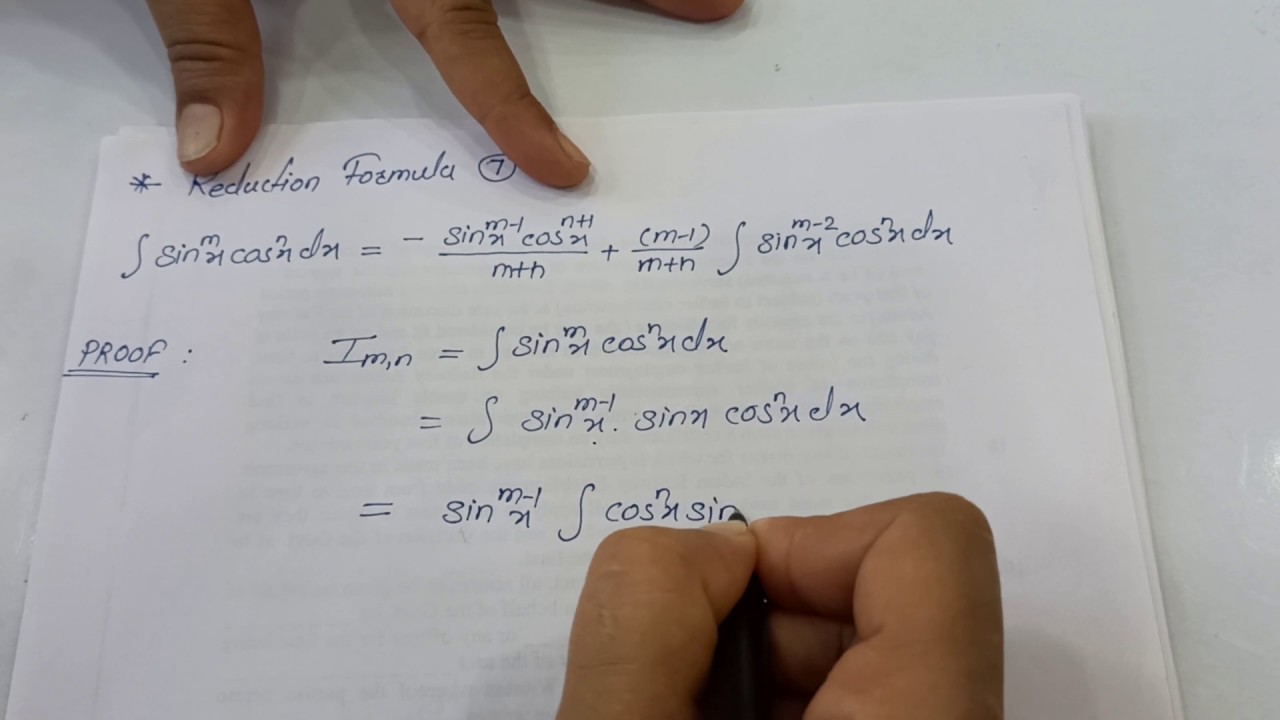 * Reduction Formula ⑦
∫ sin^m x cos^n x dx = - (sin^(m-1) x cos^(n+1) x)/(m+n) + (m-1)/(m+n) ∫ sin^(m-2) x cos^n x dx
PROOF : I_m,n = ∫ sin^m x cos^n x dx
= ∫ sin^(m-1) x . sin x cos^n x dx
= sin^(m-1) x ∫ cos^n x sin